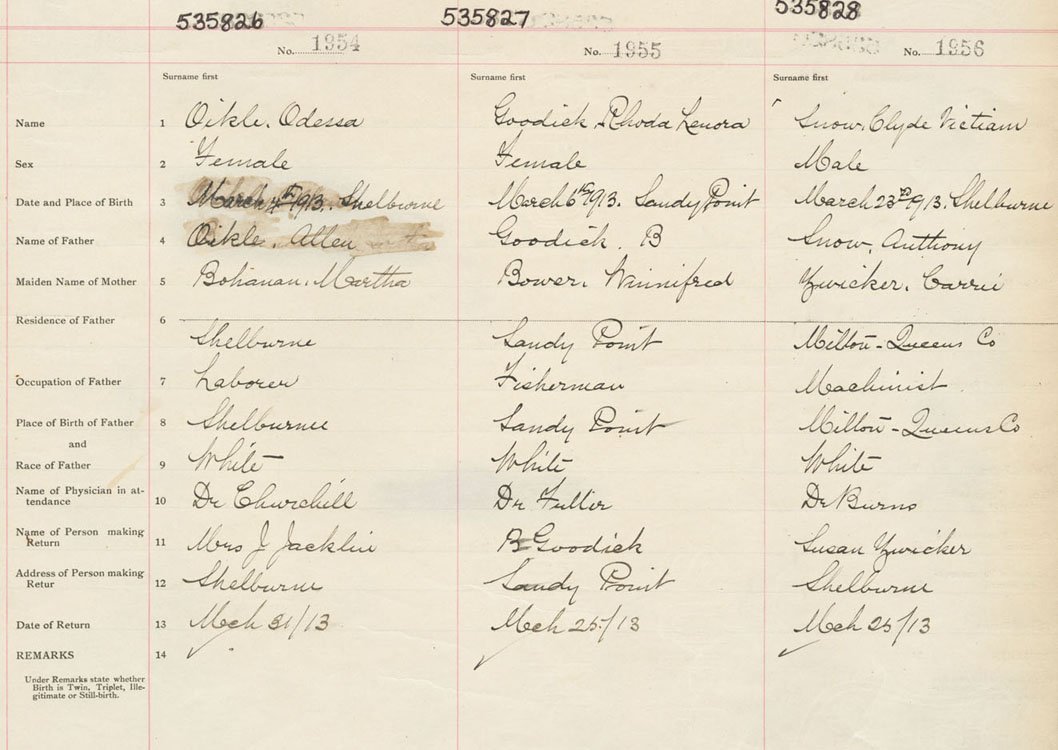 535826 535827 535828
No. 1954 No. 1955 No. 1956
Surname first Surname first Surname first
Name 1 Oikle, Odessa Goodick, Rhoda Lenora Snow, Clyde
Sex 2 Female Female Male
Date and Place of Birth 3 March 1913. Shelburne March 6th 1913. Sandy Point March 23rd 1913. Shelburne
Name of Father 4 Oikle, Allen Goodick, B Snow, Anthony
Maiden Name of Mother 5 Bohanan, Martha Bower, Winnifred Zwicker, Carrie
Residence of Father 6 Shelburne Sandy Point Milton - Queens Co
Occupation of Father 7 Laborer Fisherman Machinist
Place of Birth of Father 8 Shelburne Sandy Point Milton - Queens Co
and
Race of Father 9 White White White
Name of Physician in at-
tendance 10 Dr Churchill Dr Fuller Dr Burns
Name of Person making
Return 11 Mrs J Jacklin B Goodick Susan Zwicker
Address of Person making
Retur 12 Shelburne Sandy Point Shelburne
Date of Return 13 Mch 31/13 Mch 25/13 Mch 25/13
REMARKS 14
Under Remarks state whether
Birth is Twin, Triplet, Ille-
gitimate or Still-birth.